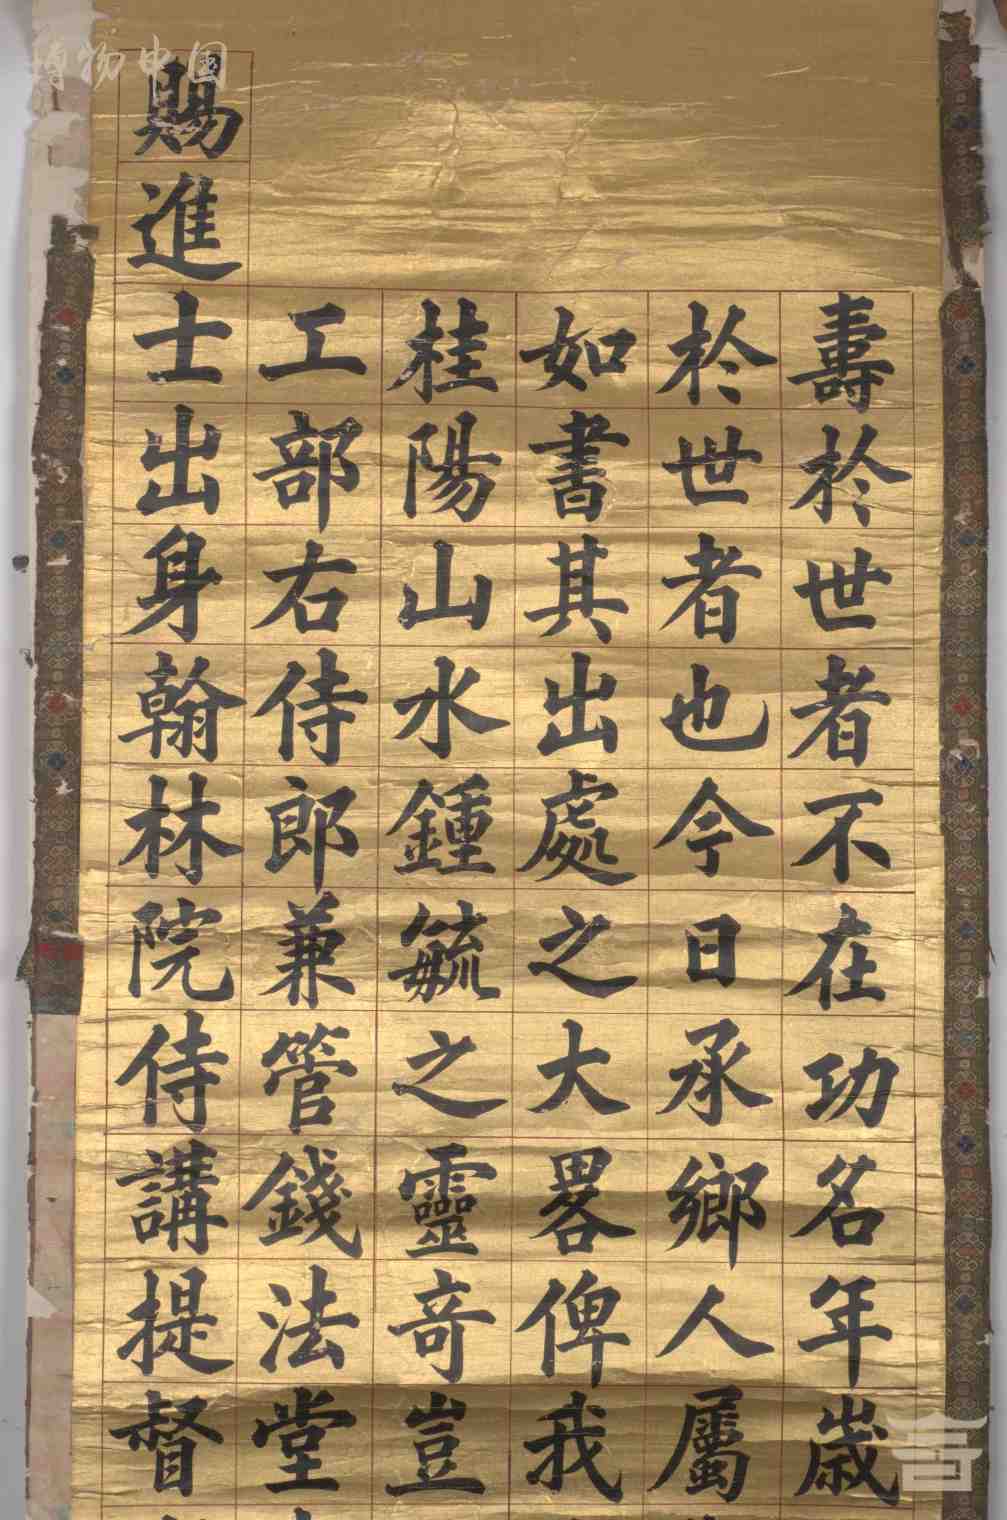 壽於世者不在功名年歲
於世者也今日承鄉人屬
如書其出處之大畧俾我
桂陽山水鍾毓之靈竒豈
工部右侍郎兼管錢法堂
賜進士出身翰林院侍講提督
博物中国